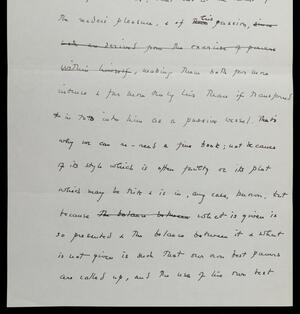 the reader's pleasure, & of his passion, since
both are derived from the exercise of powers
within himself, making them both far more
intense & far more truly his than if transferred
in toto into him as a passive vessel. That's
why we can re-read a fine book; not because
of its style which is often faulty or its plot
which may be trite & is in, any case, known, but
because The balance between what is given is
so presented & the balance between it & what
is not given is such that our own best powers
are called up, and the use of his own best